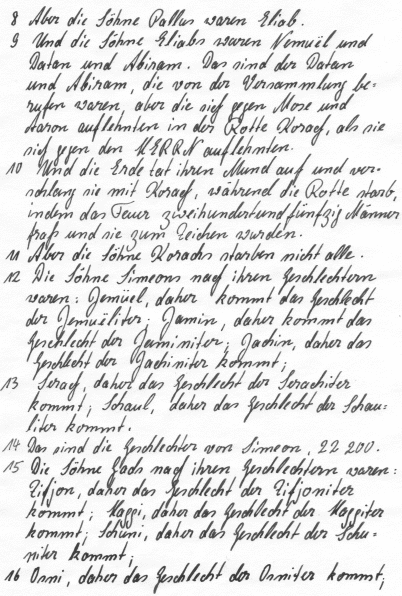 8 Aber die Söhne Pallus waren Eliab.
9 Und die Söhne Eliabs waren Nemuël und
Datan und Abiram. Das sind der Datan
und Abiram, die von der Versammlung be-
rufen waren, aber die sich gegen Mose und
Aaron auflehnten in der Rotte Korach, als sie
sich gegen den HERRN auflehnten.
10 Und die Erde tat ihren Mund auf und ver-
schlang sie mit Korach, während die Rotte starb,
indem das Feuer zweihundertundfünfzig Männer
fraß und sie zum Zeichen wurden.
11 Aber die Söhne Korachs starben nicht alle.
12 Die Söhne Simeons nach ihren Geschlechtern
waren: Jemüel, daher kommt das Geschlecht
der Jemuëliter; Jamin, daher kommt das
Geschlecht der Jaminiter; Jachin, daher das
Geschlecht der Jachiniter kommt;
13 Serach, daher das Geschlecht der Serachiter
kommt; Schaul, daher das Geschlecht der Schau-
liter kommt.
14 Das sind die Geschlechter von Simeon, 22 200.
15 Die Söhne Gads nach ihren Geschlechtern waren:
Zifjon, daher das Geschlecht der Zifjoniter
kommt; Haggi, daher das Geschlecht der Haggiter
kommt; Schuni, daher das Geschlecht der Schu-
niter kommt;
16 Osni, daher das Geschlecht der Osniter kommt;